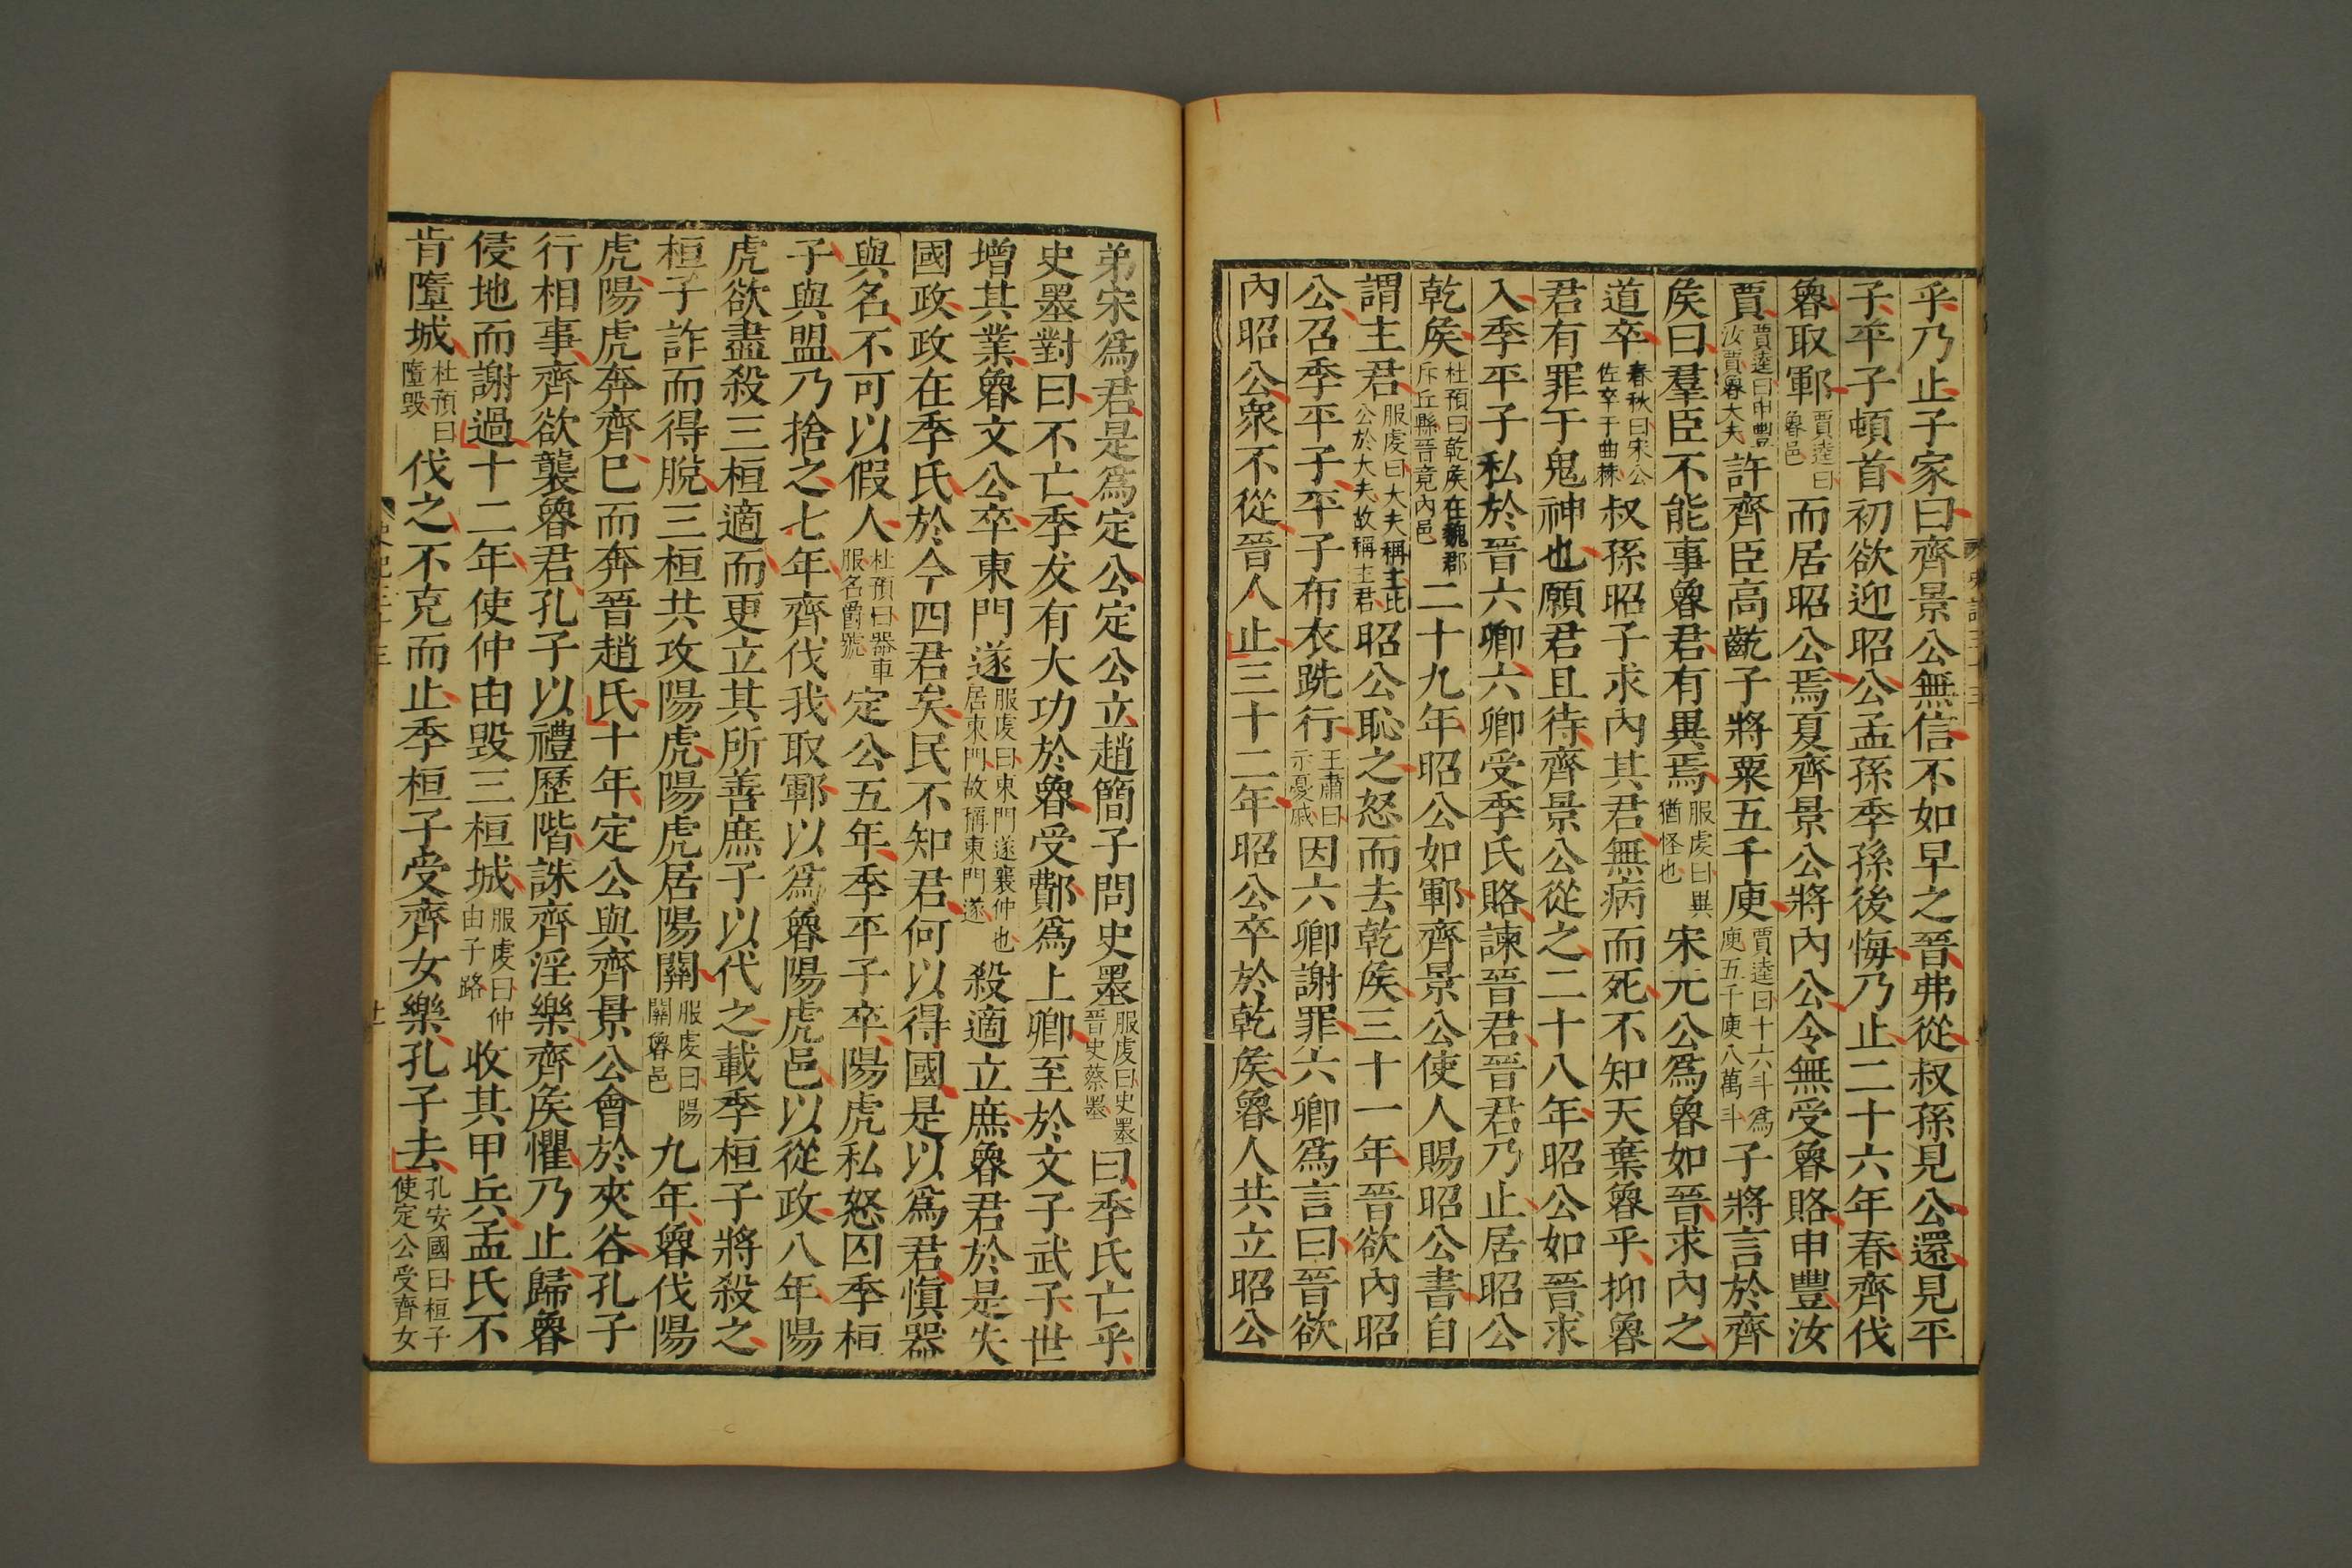 乎乃止子家曰齊景公無信不如早之晉弗從叔孫見公還見平
子平子頓首初欲迎昭公孟孫季孫後悔乃止二十六年春齊伐
魯取鄆賈逵曰魯邑而居昭公焉夏齊景公將內公令無受魯賂申豐汝
賈賈逵曰申豐汝賈魯大夫許齊臣高齕子將粟五千庾賈逵曰十六斗爲庾五千庾八萬斗子將言於齊
矦曰羣臣不能事魯君有異焉服虔曰異猶怪也宋元公爲魯如晉求內之
道卒春秋曰宋公佐卒于曲棘叔孫昭子求內其君無病而死不知天棄魯乎抑魯
君有罪于鬼神也願君且待齊景公從之二十八年昭公如晉求
入季平子私於晉六卿六卿受季氏賂諫晉君晉君乃止居昭公
乾矦杜預曰乾矦在魏郡斥丘縣晉竟內邑二十九年昭公如鄆齊景公使人賜昭公書自
謂主君服虔曰大夫稱主比公於大夫故稱主君昭公恥之怒而去乾矦三十一年晉欲內昭
公召季平子平子布衣跣行王肅曰示憂戚因六卿謝罪六卿爲言曰晉欲
內昭公衆不從晉人止三十二年昭公卒於乾矦魯人共立昭公
弟宋爲君是爲定公定公立趙簡子問史墨服虔曰史墨晉史蔡墨曰季氏亡乎
史墨對曰不亡季友有大功於魯受鄪爲上卿至於文子武子世
增其業魯文公卒東門遂服虔曰東門遂襄仲也居東門故稱東門遂殺適立庶魯君於是失
國政政在季氏於今四君矣民不知君何以得國是以爲君愼器
與名不可以假人杜預曰器車服名爵號定公五年季平子卒陽虎私怒囚季桓
子與盟乃捨之七年齊伐我取鄆以爲魯陽虎邑以從政八年陽
虎欲盡殺三桓適而更立其所善庶子以代之載季桓子將殺之
桓子詐而得脫三桓共攻陽虎陽虎居陽關服虔曰陽關魯邑九年魯伐陽
虎陽虎奔齊巳而奔晉趙氏十年定公與齊景公會於夾谷孔子
行相事齊欲襲魯君孔子以禮歷階誅齊淫樂齊矦懼乃止歸魯
侵地而謝過十二年使仲由毀三桓城服虔曰仲由子路收其甲兵孟氏不
肯墮城杜預曰墮毀伐之不克而止季桓子受齊女樂孔子去孔安國曰桓子使定公受齊女